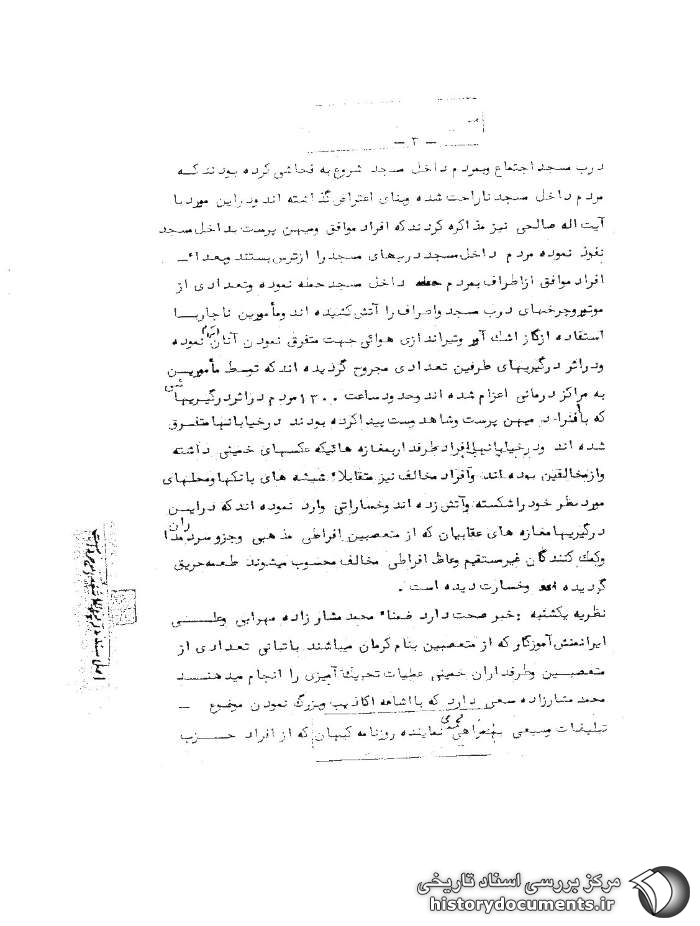 — ۳ —
درب مسجد اجتماع وبمردم داخل مسجد شروع به فحاشی کرده بودند که
مردم داخل مسجد ناراحت شده وبنای اعتراض گذاشته اند ودراین مورد با
آیت اله صالحی نیز مذاکره کردند که افراد موافق ومیهن پرست بداخل مسجد
نفوذ نموده مردم داخل مسجد دربهای مسجد را ازترس بستند وبعدا"
افراد موافق ازاطراف بمردم داخل مسجد حمله نموده وتعدادی از
موتوروچرخهای درب مسجد واطراف را آتش کشیده اند ومأمورین ناچاربا
استفاده ازگاز اشك آور وتیراندازی هوائی جهت متفرق نمودن آنان اقدام نموده
ودراثر درگیریهای طرفین تعدادی مجروح گردیده اند که توسط مأمورین
به مراکز درمانی اعزام شده اند وحدود ساعت ۱۳۰۰ مردم دراثردرگیریهائی
که باافراد میهن پرست وشاهدوست پیدا کرده بودند درخیابانها متفرق
شده اند ودرخیابانها افراد طرفدار بمغازه هائیکه عکسهای خمینی داشته
وازمخالفین بوده اند وافراد مخالف نیز متقابلا" شیشه های بانکها ومحلهای
مورد نظر خود را شکسته وآتش زده اند وخساراتی وارد نموده اند که دراین
درگیریها مغازه های عقابیان که از متعصبین افراطی مذهبی وجزو سردمداران
وکمك کنندگان غیرمستقیم وعاظ افراطی مخالف محسوب میشوند طعمه حریق
گردیده وخسارت دیده است .
نظریه یکشنبه : خبر صحت دارد ضمنا" محمد مشارزاده مهرابی وعلی
ایرانمنش آموزگار که از متعصبین بنام کرمان میباشند باتبانی تعدادی از
متعصبین وطرفداران خمینی عملیات تحریك آمیزی را انجام میدهند
محمد مشارزاده سعی دارد که بااشاعه اکاذیب وبزرگ نمودن موضوع —
تبلیغات وسیعی بهمراهی نماینده روزنامه کیهان که از افراد حزب
مرکز بررسی اسناد تاریخی
historydocuments.ir